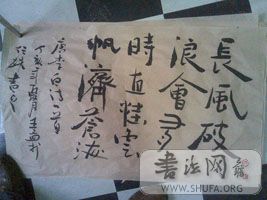 長風破
浪會有
時直挂雲
帆濟滄海
唐李白詩
丁亥
書法网
WWW.SHUFA.ORG